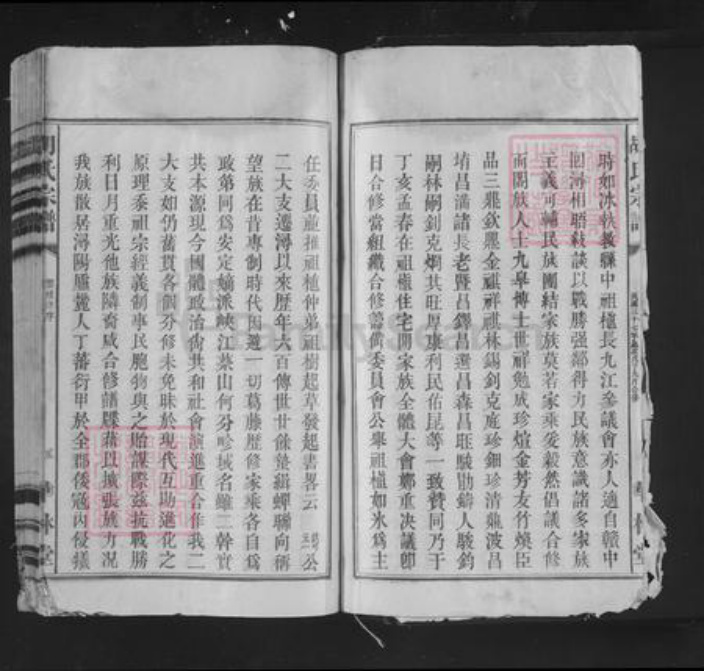 時如冰執教縣中祖植長九江參議會亦人適自贛中
回潯相晤敍談以戰勝強鄰得力民族意識諸多家族
主義可輔民族團結家族莫若家乘爰毅然倡議合修
而閤族人士九皋博士世祥勉成珍煊金芳友竹煥臣
品三兆欽 金祺祥祺林錫釗克庭珍鈿珍清龍波昌
堉昌滿諸長老暨昌鐸昌選昌森昌旺駿勛鑄人駿鈞
嗣林嗣釗克烱其旺厚康利民佑昆等一致贊同乃于
丁亥孟春在祖植住宅開家族全體大會鄭重决議卽
日合修當組織合修籌備委員會公舉祖植如氷爲主
任委員並推祖植仲弟祖樹起草發起書畧云 公
二大支遷潯以來歷年六百傳世廿餘蟄緝蟬聯向稱
望族在昔專制時代因避一切葛藤歷修家乘各自爲
政第同爲安定嫡派峽江蔡山何分畛域名雖二幹實
共本源現今國體政治尙共和社會演進重合作我二
大支如仍舊貫各個分修未免昧於現代互助進化之
原理黍祖宗經義制事民胞物與之貽謀際兹抗戰勝
利日月重光他族隣裔咸合修譜牒藉以擴張族力况
我族散居潯陽廬麓人丁蕃衍甲於全郡倭寇內侵議
胡氏宗譜
林堂
FamilySearch